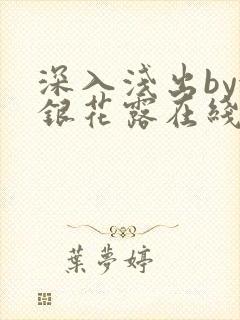 深入浅出by
銀花露在綫
葉夢婷